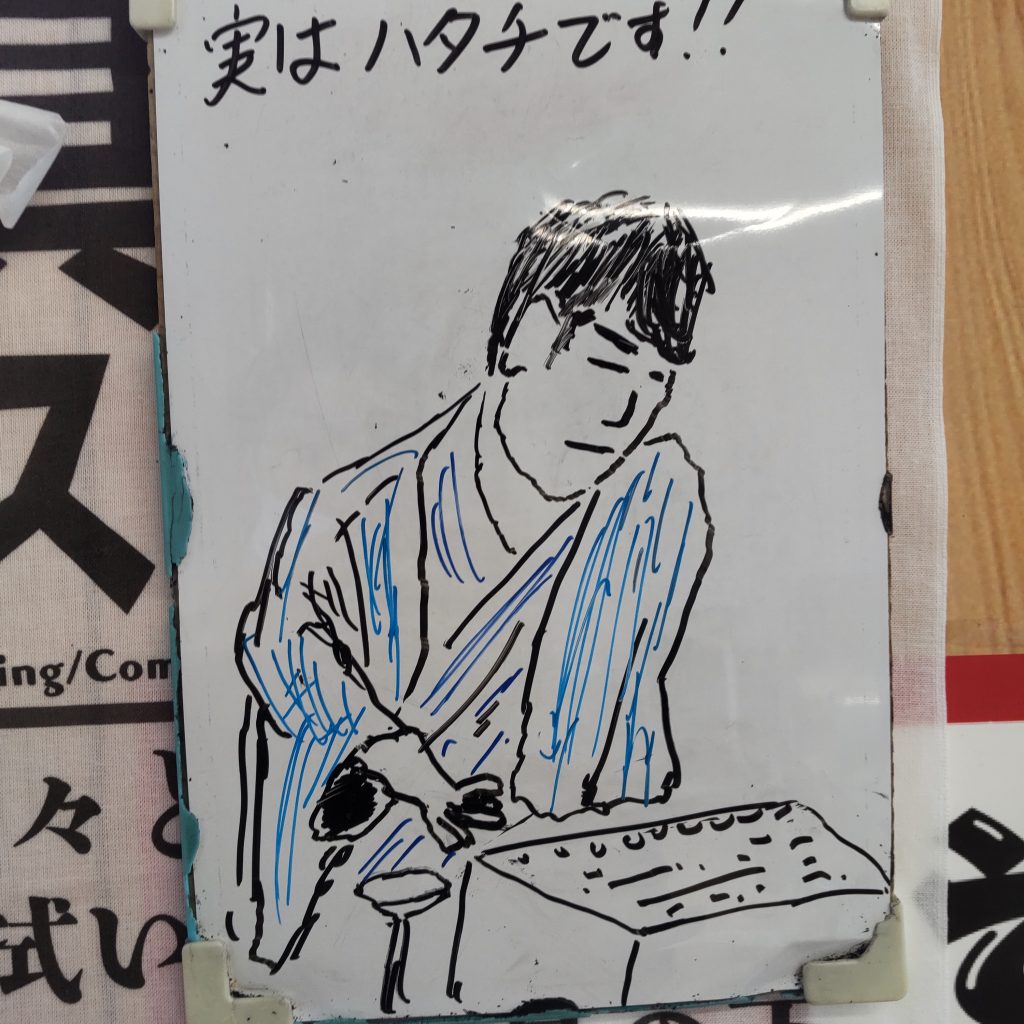 実はハタチです!!
ス
ing/Com
々と
試い